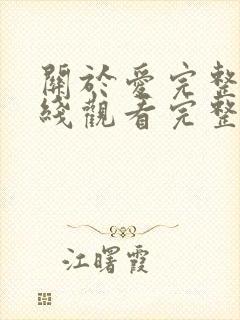 關於愛完整
綫觀看完整
江曙霞